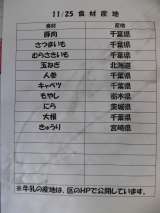 11/25 食材産地
食材 産地
豚肉 千葉県
さつまいも 千葉県
むらさきいも 千葉県
玉ねぎ 北海道
人参 千葉県
キャベツ 千葉県
もやし 栃木県
にら 茨城県
大根 千葉県
きゅうり 宮崎県
※牛乳の産地は、区のHPで公開しています。